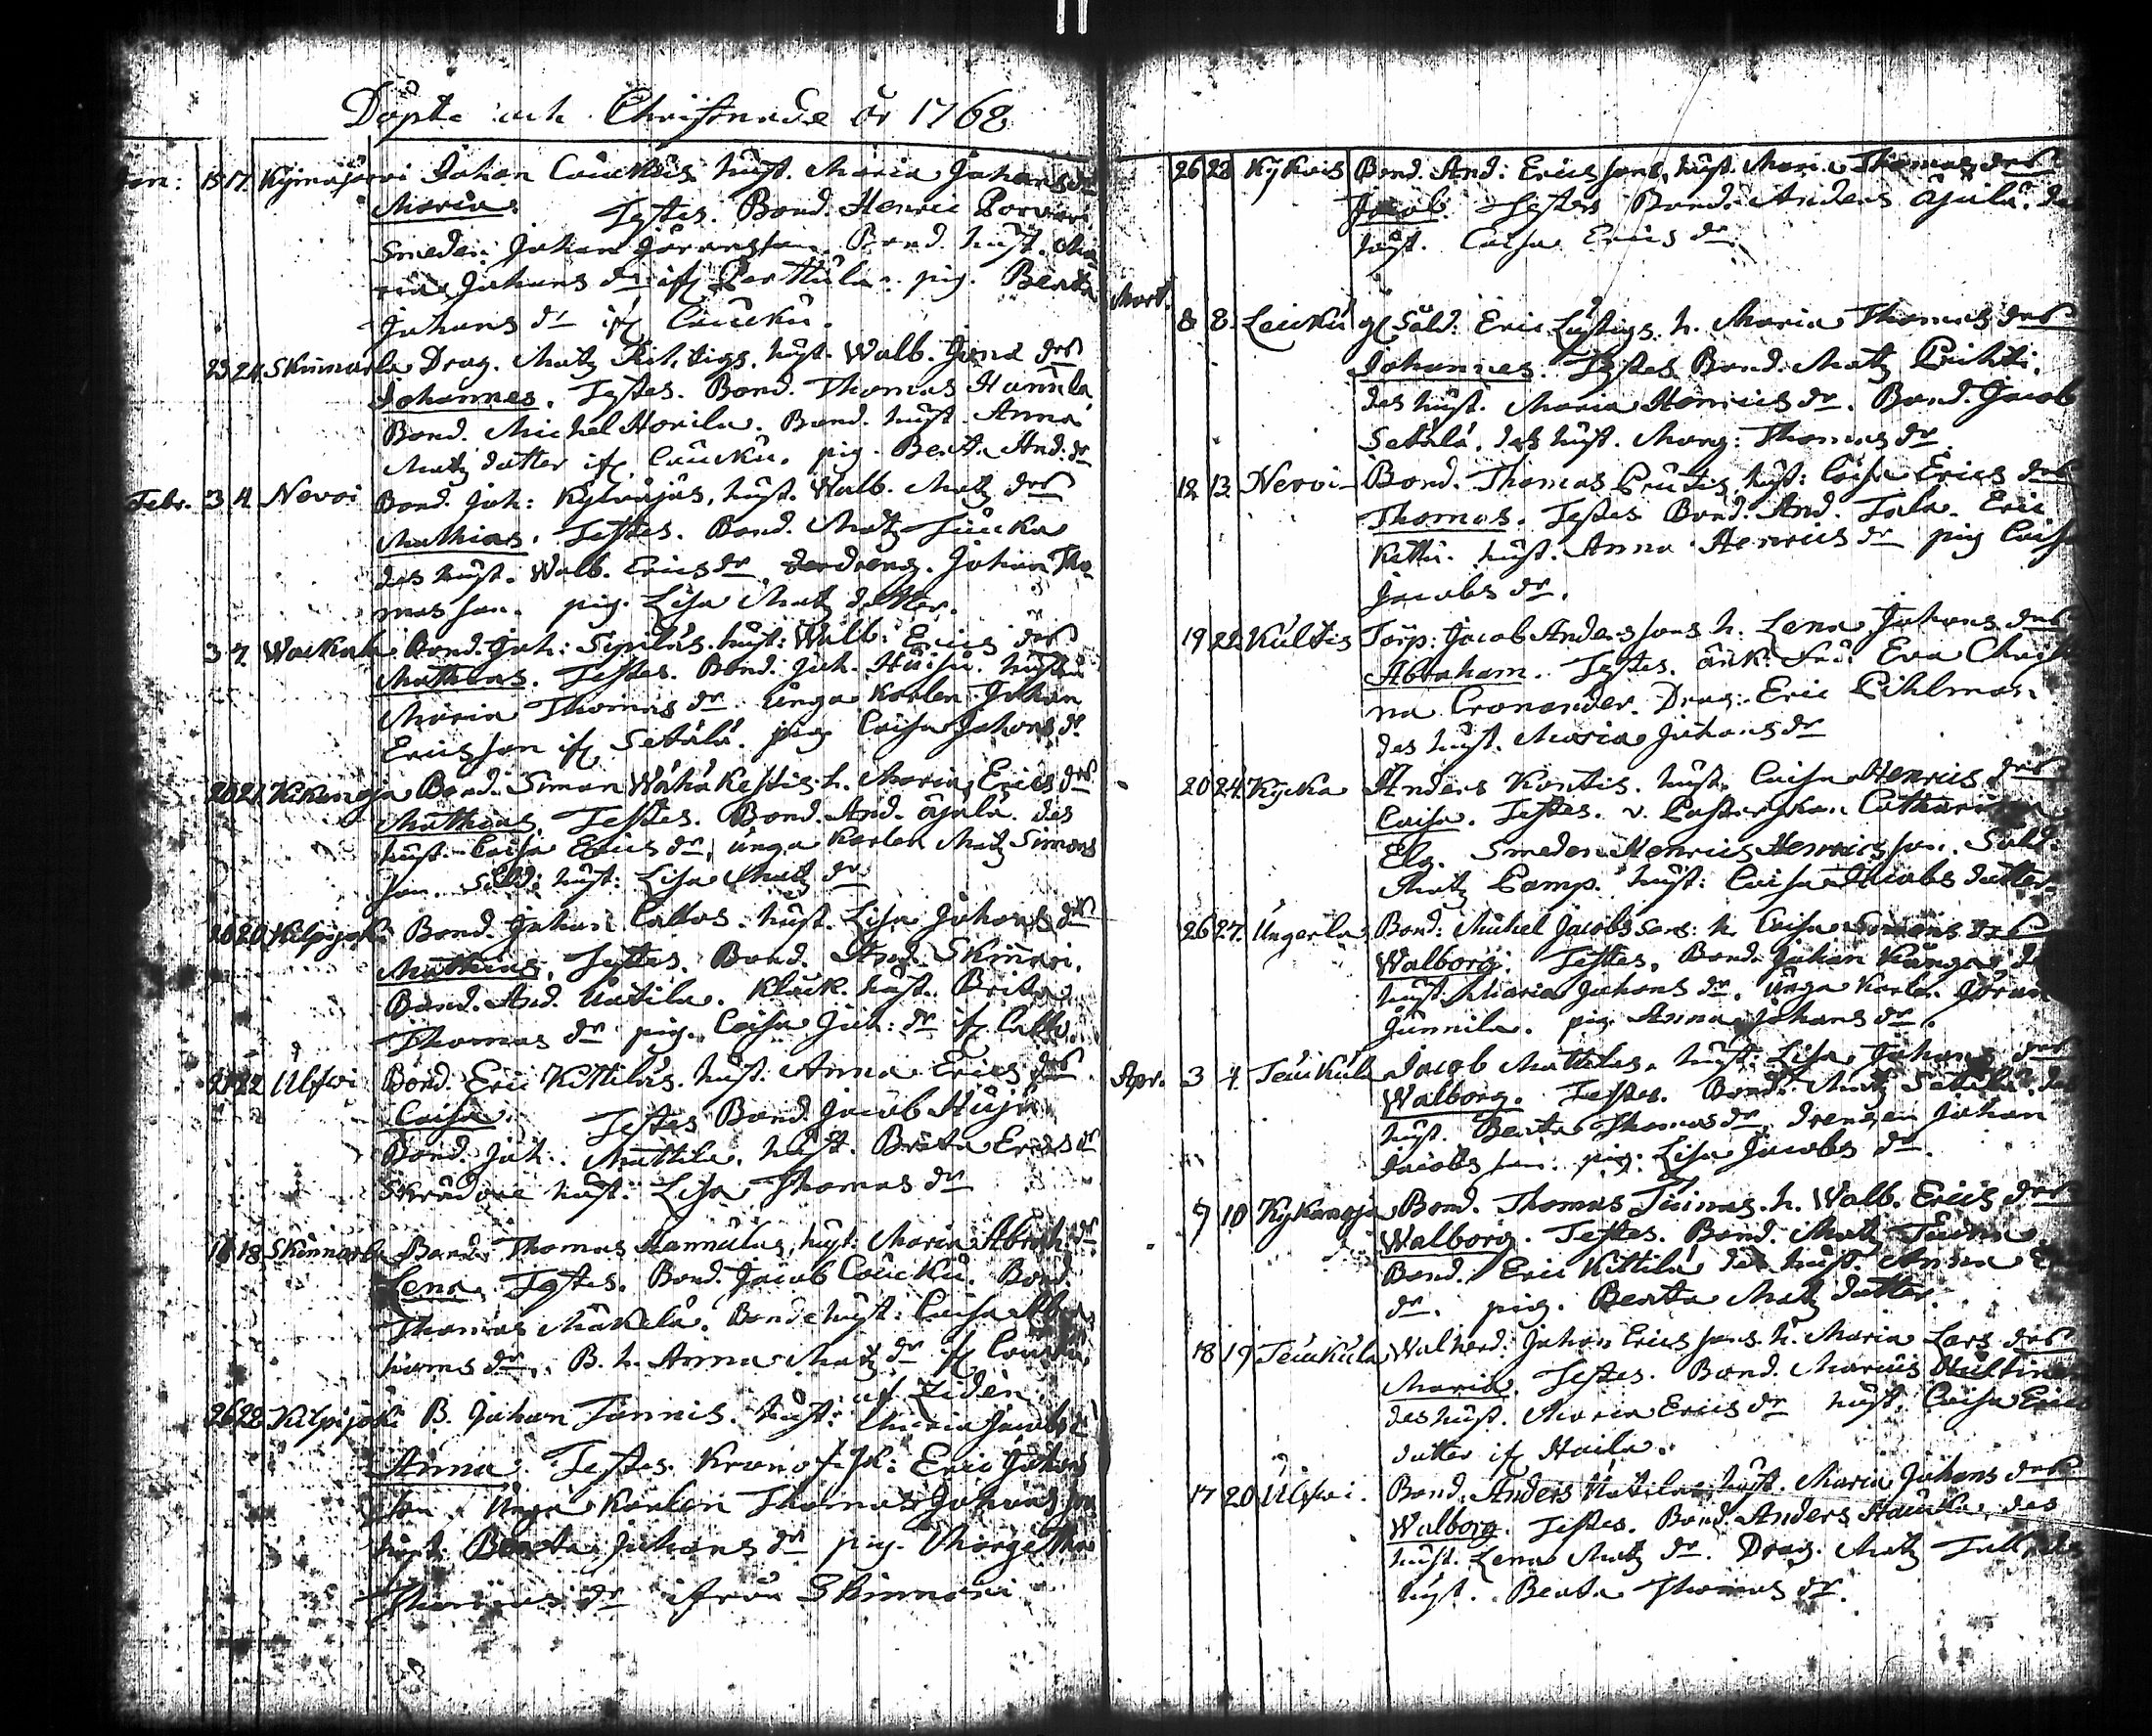 Döpte och Christnade år 1768
15 17. Kymäjärvi Johan Cauckus hust. Maria Johans dr
Maria. Testes. Bond. Henric Porvari
Smeden: Johan Göransson. Bond. hust. Ma
ria Johans dr if Perttula. pig. Beata
Johans dr if Caucku.
23 24. Skinnarla Drag. Matz hust. Walb. drs
Johannes. Testes. Bond. Thomas Hannula
Bond. Michel Horila. Bond. hust. Anna
Matz datter if Caucku. pig. Beat. And. dr
Febr. 3 4 Nevoi Bond. Joh: hust. Walb. Matz drs
Mathias. Testes. Bond. Matz
des hust. Walb. Erics dr. Johan Tho
mas son. pig. Lisa Matz datter.
3. 7. Bond. Joh: hust: Walb: Erics drs
Mathias. Testes. Bond. Joh. hustru
Maria Thomas dr unga Karlen Johan
Ericsson if Setälä. pig. Caisa Johans dr
20 21. Bond. Simon Wähäkestis h. Maria Erics drs
Mathias. Testes. Bond. And. Äjälä. des
hust. Caisa Erics dr, unga Karlen Matz Simons
son. Sold: hust: Lisa Matz dr
20 Kilpijoki Bond. Johan Callos hust. Lisa Johans drs
Mathias. Testes. Bond. And. Skinnari.
Bond. And. Uotila. Klåck. hust. Brita
Thomas dr pig. Caisa Joh: dr if
22 Ulfvi Bond. Eric Kittiläs. hust: Anna Erics drs
Caisa. Testes Bond. Jacob
Bond. Joh: Mattila. hust. Brita Erics dr
hust: Lisa Thomas dr
18 Skinnarla Bond: Thomas Hannulas, hust: Maria Abrah. dr
Lena. Testes. Bond. Jacob Caucku. Bond.
Thomas Mäkelä. Bonde hust: Caisa Abra
hams dr. B. h. Anna Matz dr if
26 28 Kilpijoki B. Johan hust: Maria Jacobs
Anna. Testes. Eric Johans
son unga Karlen Thomas Johans son
hust. Beata Johans dr pig.
dr ifrån Skinnari
26 28 Bond. And: Ericssons, hust. Maria Thomas drs
Jacob. Testes Bond. Anders Äjälä. des
hust. Caisa Erics dr.
Mart.
8 8. Laukü Sold: Eric Lustigs. h. Maria Thomas drs
Johannes. Testes Bond. Matz
des hust. Maria Henrics dr. Bond. Jacob
Setälä. des hust. Marg: Thomas dr
12 13. Nevoi Bond. Thomas hust: Caisa Erics drs
Thomas. Testes Bond. And. Tala. Eric
Kettu. hust. Anna Henrics dr pig Caisa
Jacobs dr.
19 22. Kultis Torp: Jacob Anderssons h. Lena Johans drs
Abraham. Testes. änk: Eva
na Cronander. Drag. Eric Pihlman
des hust. Maria Johans dr
20 24. Kycka Anders Kontis. hust. Caisa Henrics drs
Caisa. Testes. v. Catharina
Elg. Smeden Henrics Henricsson. Sold.
Matz Camp. hust: Caisa Jacobs datter.
26 27. Ungerla Bond: Michel Jacobssons: h. Caisa Simons drs
Walborg. Testes. Bond. Johan
hust. Maria Johans dr. unga Karlen Göran
Junnila. pig. Anna Johans dr.
Apr. 3 4. Teukula Jacob Mattilas. hust: Lisa Johans drs
Walborg. Testes. Bond. Matz Setälä. des
hust. Beata Thomas dr. drengen Johan
Jacobs son: pig: Lisa Jacobs dr.
9 10 Kykänoja Bond. Thomas h. Walb. Erics drs
Walborg. Testes. Bond. Matz
Bond. Eric Kittilä des hust. Anna
dr. pig. Beata Matz datter.
18 19 Teukula Johan Ericssons. h. Maria Lars drs
Maria. Testes. Bond. Marcus
des hust. Maria Erics dr hust. Caisa Erics
datter if Haila.
17 20 Ulfvi. Bond. Anders Uotilas, hust. Maria Johans drs
Walborg. Testes. Bond. Anders Haucka, des
hust. Lena Matz dr. Drag. Matz
hust. Beata Thomas dr.